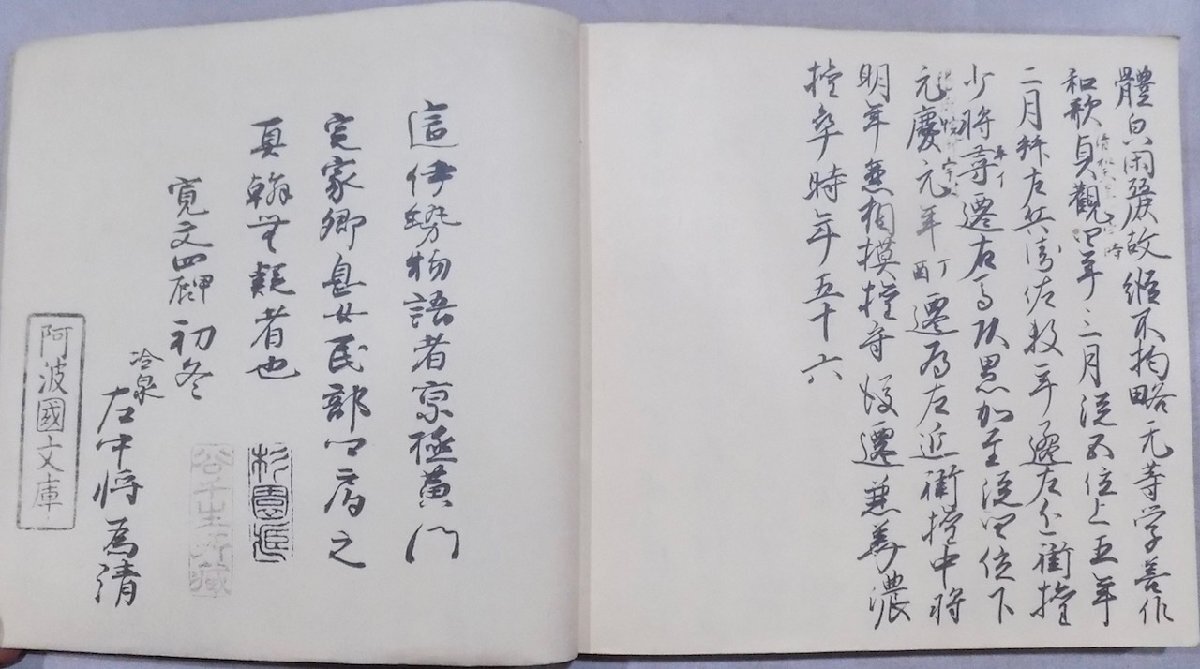 體白閑麗故縱不拘略无等学善作
和歌貞觀四年三月從五位上五年
二月拜左兵衛佐数年遷左近衛權
少將尋遷右馬頭累加至從四位下
元慶元年丁酉遷為左近衛權中將
明年兼相模權守後遷兼美濃
權守卒時年五十六
這伊勢物語者京極黄門
定家卿息女民部卿局之
真翰無疑者也
寛文四甲辰初冬
冷泉
左中将為清
阿波國文庫